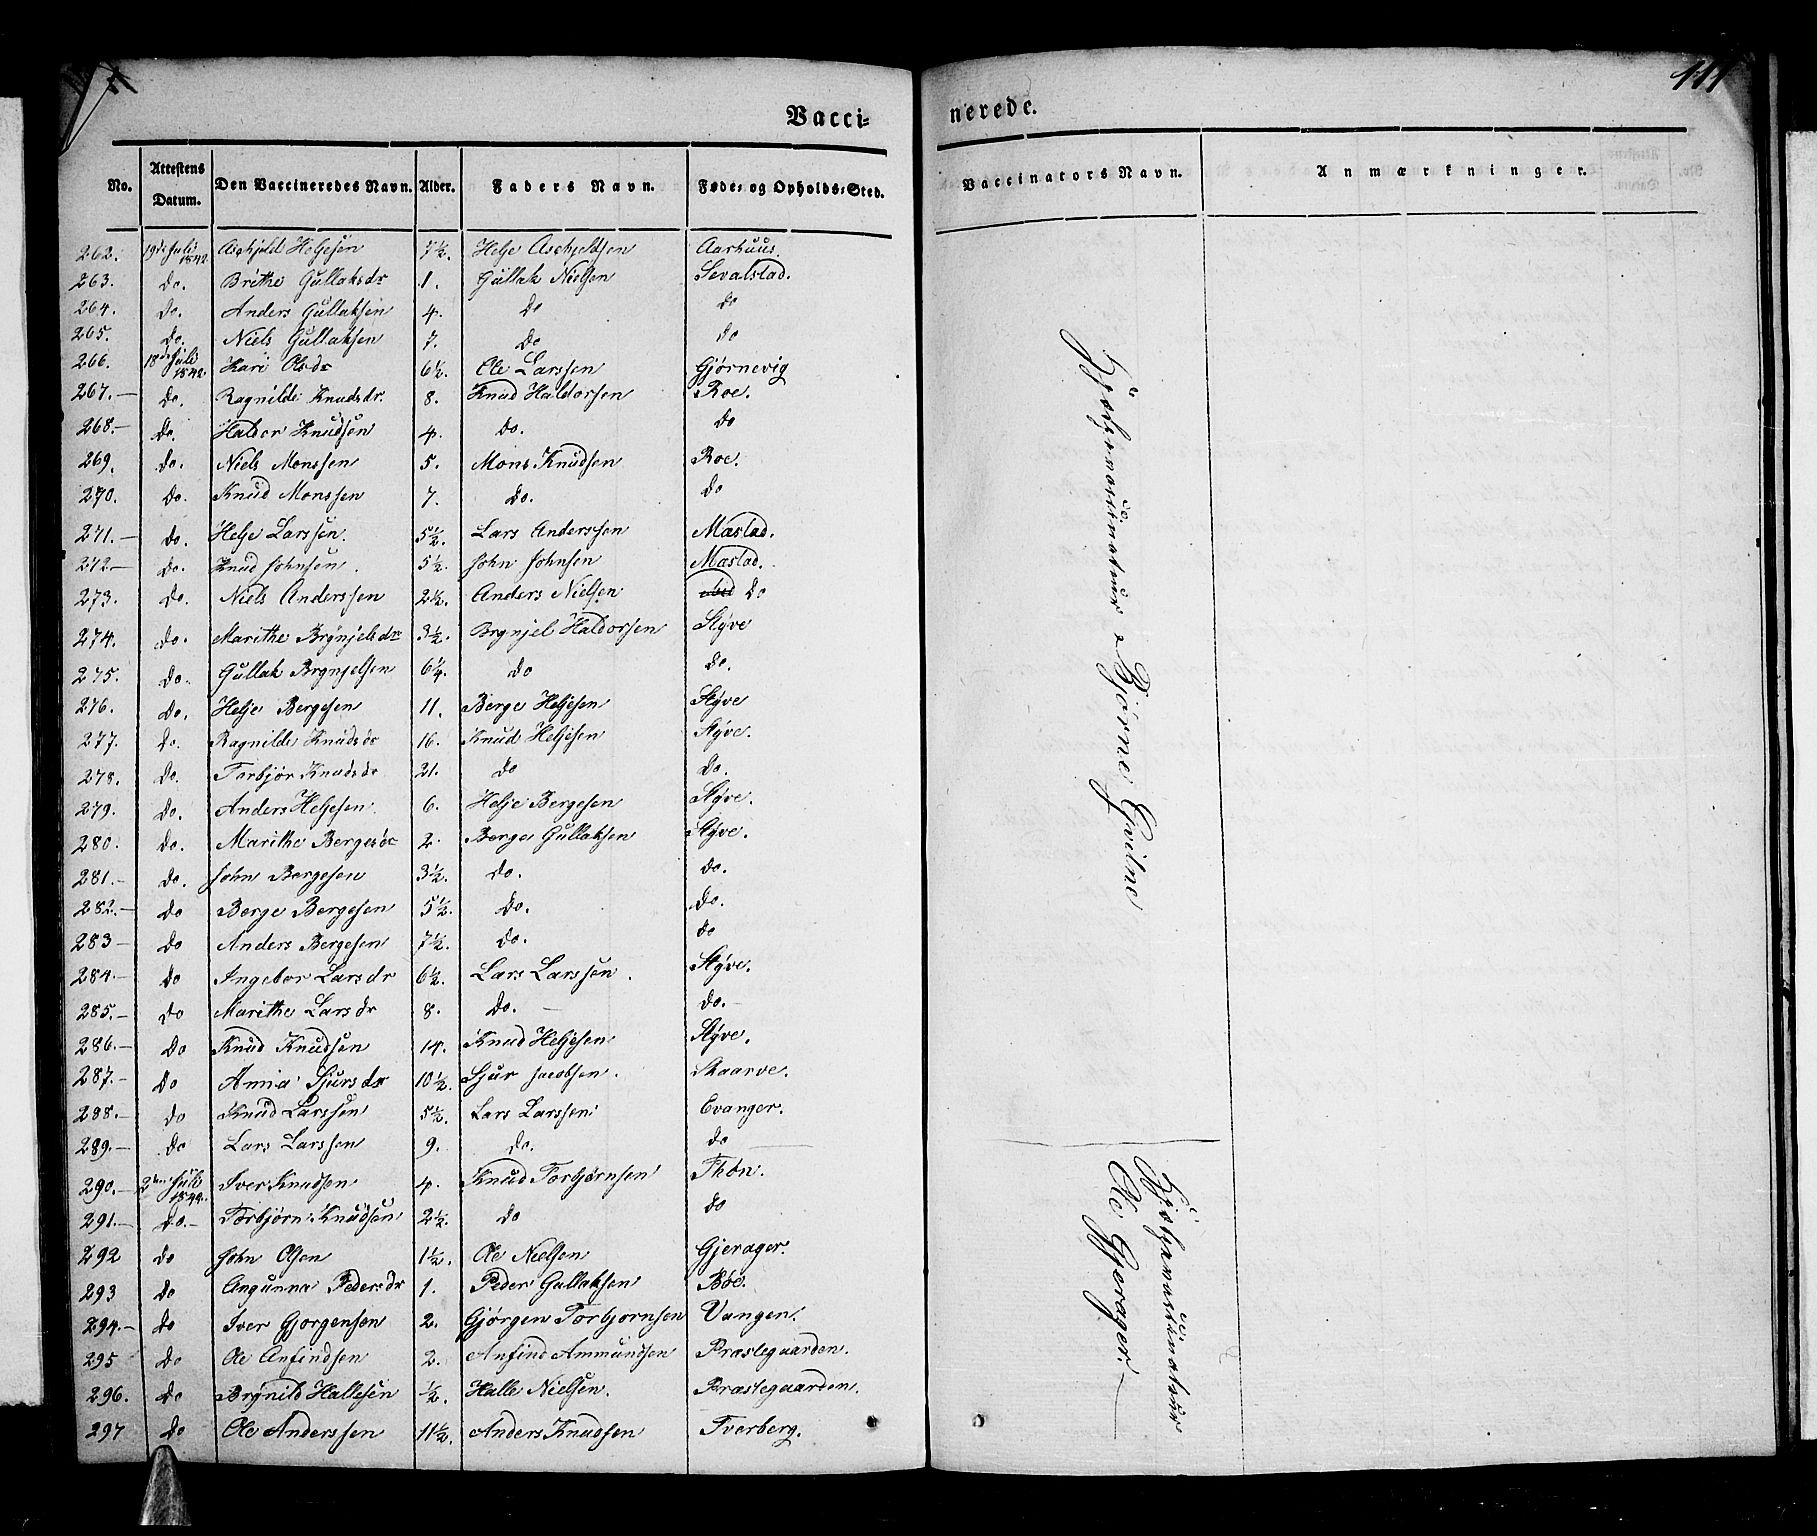 111
Vacci= nerede.
No. Attestens Datum. Den Vaccineredes Navn. Alder. Faders Navn. Føde- og Opholds-Sted. Vaccinators Navn. Anmærkninger.
262. 19de Juli 1842. Aschjeld Heljesen 7½. Helje Aschjeldsen Aarhuus.
263. do. Brithe Gullaksdr 1. Gullak Nielsen Sevalstad.
264. do. Anders Gullaksen 4. do do
265. do. Niels Gullaksen 7. do do
266. 18de Juli 1842. Kari Olsdr 6½. Ole Larssen Gjørnevig
267.— do. Ragnilde Knudsdr. 8. Knud Haldorsen Roe.
268.— do. Haldor Knudsen 4. do. do
269. do. Niels Monssen 5. Mons Knudsen Roe.
270. do. Knud Monssen 7. do. do
271.— do. Helje Larssen. 5½. Lars Anderssen Mæstad.
272— do. Knud Johnsen. 5½. John Johnsen Mæstad.
273. do. Niels Anderssen 2½. Anders Nielsen do
274. do. Marithe Brynjelsdr 3½. Brynjel Haldorsen Styve
275. do. Gullak Brynjelsen 6¼. do do.
276. do. Helje Bergesen 11. Berge Heljesen Styve
277. do. Ragnilde Knudsdr 16. Knud Heljesen Styve.
278. do. Torbjør Knudsdr 21. do do.
279. do. Anders Heljesen. 6. Helje Bergesen Styve.
280. do. Marithe Bergesdr 2. Berge Gullaksen Styve.
281.— do. John Bergesen 3½. do. do.
282.— do Berge Bergesen 5½. do. do.
283— do Anders Bergesen 7½. do. do
284.— do Ingebor Larsdr 6½. Lars Larssen. Styve.
285.— do Marithe Larsdr 8. do. — do.—
286.— do Knud Knudsen 14. Knud Heljesen Styve.
287.— do Anna Sjursdr 10½. Sjur Jacobsen. Skaarve.
288.— do Knud Larssen 5½. Lars Larssen Evanger.
289.— do Lars Larssen 9. do. do
290.— 2den Juli 1842. Iver Knudsen 4. Knud Torbjørnsen Thøn.
291.— do.— Torbjørn Knudsen 2½. do do
292 do John Olsen 1½. Ole Nielsen Gjerager.
293 do Angunna Pedersdr 1. Peder Gullaksen Bøe.
294.— do Iver Gjørgensen 2. Gjørgen Torbjørnsen Vangen.
295 do Ole Anfindsen 2. Anfind Ammundsen Præstegaarden.
296. do Brynild Hallesen ½. Halle Nielsen. Præstegaarden.
297 do Ole Anderssen 11½. Anders Knudsen Tverberg.
Bjørne Gvilne
Ole Gjerager.—